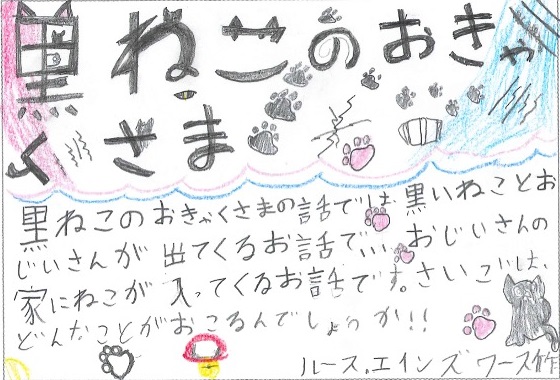 黒ねこのおきゃ
くさま
黒ねこのおきゃくさまの話では、黒いねことお
じいさんが出てくるお話で、、、おじいさんの
家にねこが入ってくるお話です。さいごは、
どんなことがおこるんでしょうか!!
ルース.エインズワース作